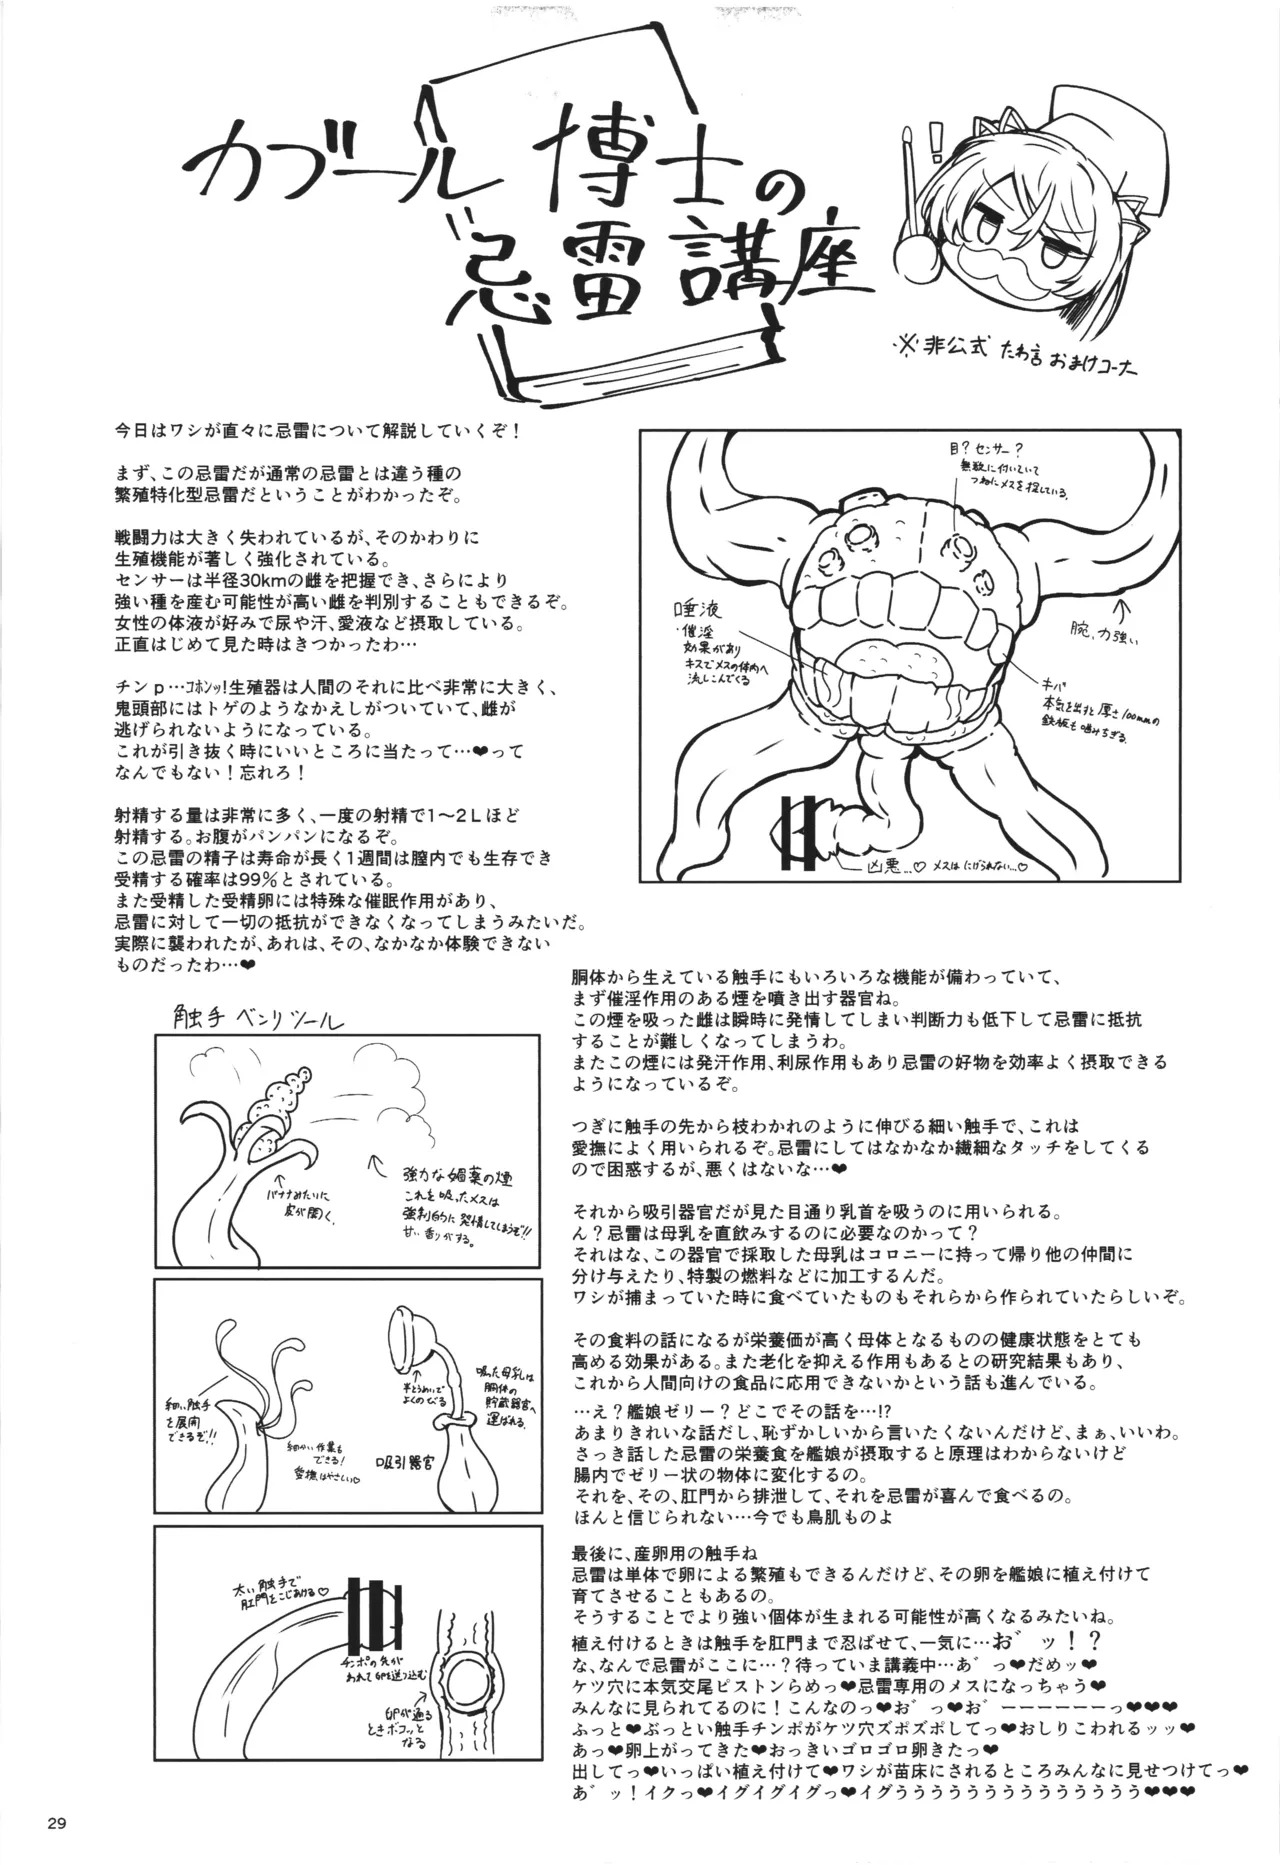 カブール博士の
忌雷講座
!
※非公式 たわ言 おまけコーナー
今日はワシが直々に忌雷について解説していくぞ！
まず、この忌雷だが通常の忌雷とは違う種の
繁殖特化型忌雷だということがわかったぞ。
戦闘力は大きく失われているが、そのかわりに
生殖機能が著しく強化されている。
センサーは半径30kmの雌を把握でき、さらにより
強い種を産む可能性が高い雌を判別することもできるぞ。
女性の体液が好みで尿や汗、愛液など摂取している。
正直はじめて見た時はきつかったわ…
チンｐ…ｺﾎﾝｯ!生殖器は人間のそれに比べ非常に大きく、
鬼頭部にはトゲのようなかえしがついていて、雌が
逃げられないようになっている。
これが引き抜く時にいいところに当たって…❤って
なんでもない！忘れろ！
射精する量は非常に多く、一度の射精で1〜2Ｌほど
射精する。お腹がパンパンになるぞ。
この忌雷の精子は寿命が長く1週間は膣内でも生存でき
受精する確率は99%とされている。
また受精した受精卵には特殊な催眠作用があり、
忌雷に対して一切の抵抗ができなくなってしまうみたいだ。
実際に襲われたが、あれは、その、なかなか体験できない
ものだったわ…❤
目？センサー？
無数に付いていて
つねにメスを探している。
唾液
・催淫
効果があり
キスでメスの体内へ
流しこんでくる
腕、力強い
キバ
本気を出すと厚さ100mmの
鉄板も噛みちぎる。
凶悪…♡ メスはにげられない…♡
触手 ベンリツール
バナナみたいに
皮が開く。
強力な媚薬の煙
これを吸ったメスは
強制的に発情してしまうぞ!!
甘い香りがする。
細い触手
を展開
できるぞ!!
細かい作業も
できる！
愛撫はやさしい♡
半とうめいで
よくのびる
吸った母乳は
胴体の
貯蔵器官へ
運ばれる。
吸引器官
太い触手で
肛門をこじあける♡
チンポの先が
われて卵を送り込む
卵が通る
ときボコッと
なる
胴体から生えている触手にもいろいろな機能が備わっていて、
まず催淫作用のある煙を噴き出す器官ね。
この煙を吸った雌は瞬時に発情してしまい判断力も低下して忌雷に抵抗
することが難しくなってしまうわ。
またこの煙には発汗作用、利尿作用もあり忌雷の好物を効率よく摂取できる
ようになっているぞ。
つぎに触手の先から枝わかれのように伸びる細い触手で、これは
愛撫によく用いられるぞ。忌雷にしてはなかなか繊細なタッチをしてくる
ので困惑するが、悪くはないな…❤
それから吸引器官だが見た目通り乳首を吸うのに用いられる。
ん？忌雷は母乳を直飲みするのに必要なのかって？
それはな、この器官で採取した母乳はコロニーに持って帰り他の仲間に
分け与えたり、特製の燃料などに加工するんだ。
ワシが捕まっていた時に食べていたものもそれらから作られていたらしいぞ。
その食料の話になるが栄養価が高く母体となるものの健康状態をとても
高める効果がある。また老化を抑える作用もあるとの研究結果もあり、
これから人間向けの食品に応用できないかという話も進んでいる。
…え？艦娘ゼリー？どこでその話を…!?
あまりきれいな話だし、恥ずかしいから言いたくないんだけど、まぁ、いいわ。
さっき話した忌雷の栄養食を艦娘が摂取すると原理はわからないけど
腸内でゼリー状の物体に変化するの。
それを、その、肛門から排泄して、それを忌雷が喜んで食べるの。
ほんと信じられない…今でも鳥肌ものよ
最後に、産卵用の触手ね
忌雷は単体で卵による繁殖もできるんだけど、その卵を艦娘に植え付けて
育てさせることもあるの。
そうすることでより強い個体が生まれる可能性が高くなるみたいね。
植え付けるときは触手を肛門まで忍ばせて、一気に…お゛ッ！？
な、なんで忌雷がここに…？待っていま講義中…あ゛っ❤だめッ❤
ケツ穴に本気交尾ピストンらめっ❤忌雷専用のメスになっちゃう❤
みんなに見られてるのに！こんなのっ❤お゛っ❤お゛ーーーーーーっ❤❤❤
ふっと❤ぶっとい触手チンポがケツ穴ズポズポしてっ❤おしりこわれるッッ❤
あっ❤卵上がってきた❤おっきいゴロゴロ卵きたっ❤
出してっ❤いっぱい植え付けて❤ワシが苗床にされるところみんなに見せつけてっ❤
あ゛ッ！イクっ❤イグイグイグっ❤イグうううううううううううううううう❤❤❤
29